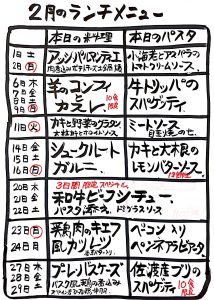 2月のランチメニュー
本日の料理 本日のパスタ
1日 土
2日 日
アッシパルマンティエ
小海老とアスパラの
トマトクリームソース。
6日 木
7日 金
8日 土
9日 日
羊のコンフィ
カスレ。
10食限定
牛トリッパの
スパゲティ。
11日 火
カキと野菜のグラタン
ミートソース
14日 金
15日 土
16日 日
シュークルート
ガルニ。
カキと大根の
レモンバターソース。
20日 木
21日 金
22日 土
3日間限定スペシャル。
和牛ビーフシチュー。
パスタ添え。
23日 日
24日 月
鶏肉のキエフ
風カツレツ
ベーコン入り
ペンネアラビアータ
27日 木
28日 金
29日 土
プレバスケーズ
佐渡産ブリの
スパゲティ。
10食限定